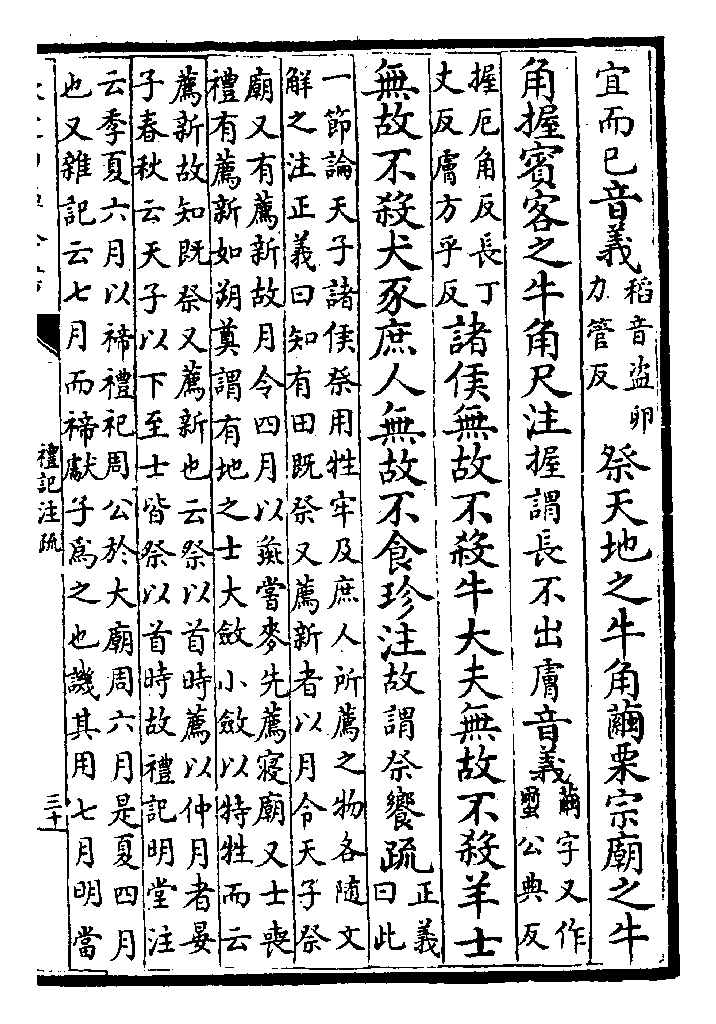 宜而已音義稻音盗卵
力管反祭天地之牛角繭栗宗廟之牛
角握賓客之牛角尺注握謂長不出膚音義繭字又作
蠒公典反
握厄角反長丁
丈反膚方乎反諸侯無故不殺牛大夫無故不殺羊士
無故不殺犬豕庶人無故不食珍注故謂祭饗疏正義
曰此
一節論天子諸侯祭用牲牢及庶人所薦之物各随文
解之注正義曰知有田既祭又薦新者以月令天子祭
廟又有薦新故月令四月以彘嘗麥先薦寢廟又士喪
禮有薦新如朔奠謂有地之士大斂小斂以特牲而云
薦新故知既祭又薦新也云祭以首時薦以仲月者晏
子春秋云天子以下至士皆祭以首時故禮記明堂注
云季夏六月以禘禮祀周公於大廟周六月是夏四月
也又雜記云七月而禘獻子為之也譏其用七月明當
禮記注疏
三十